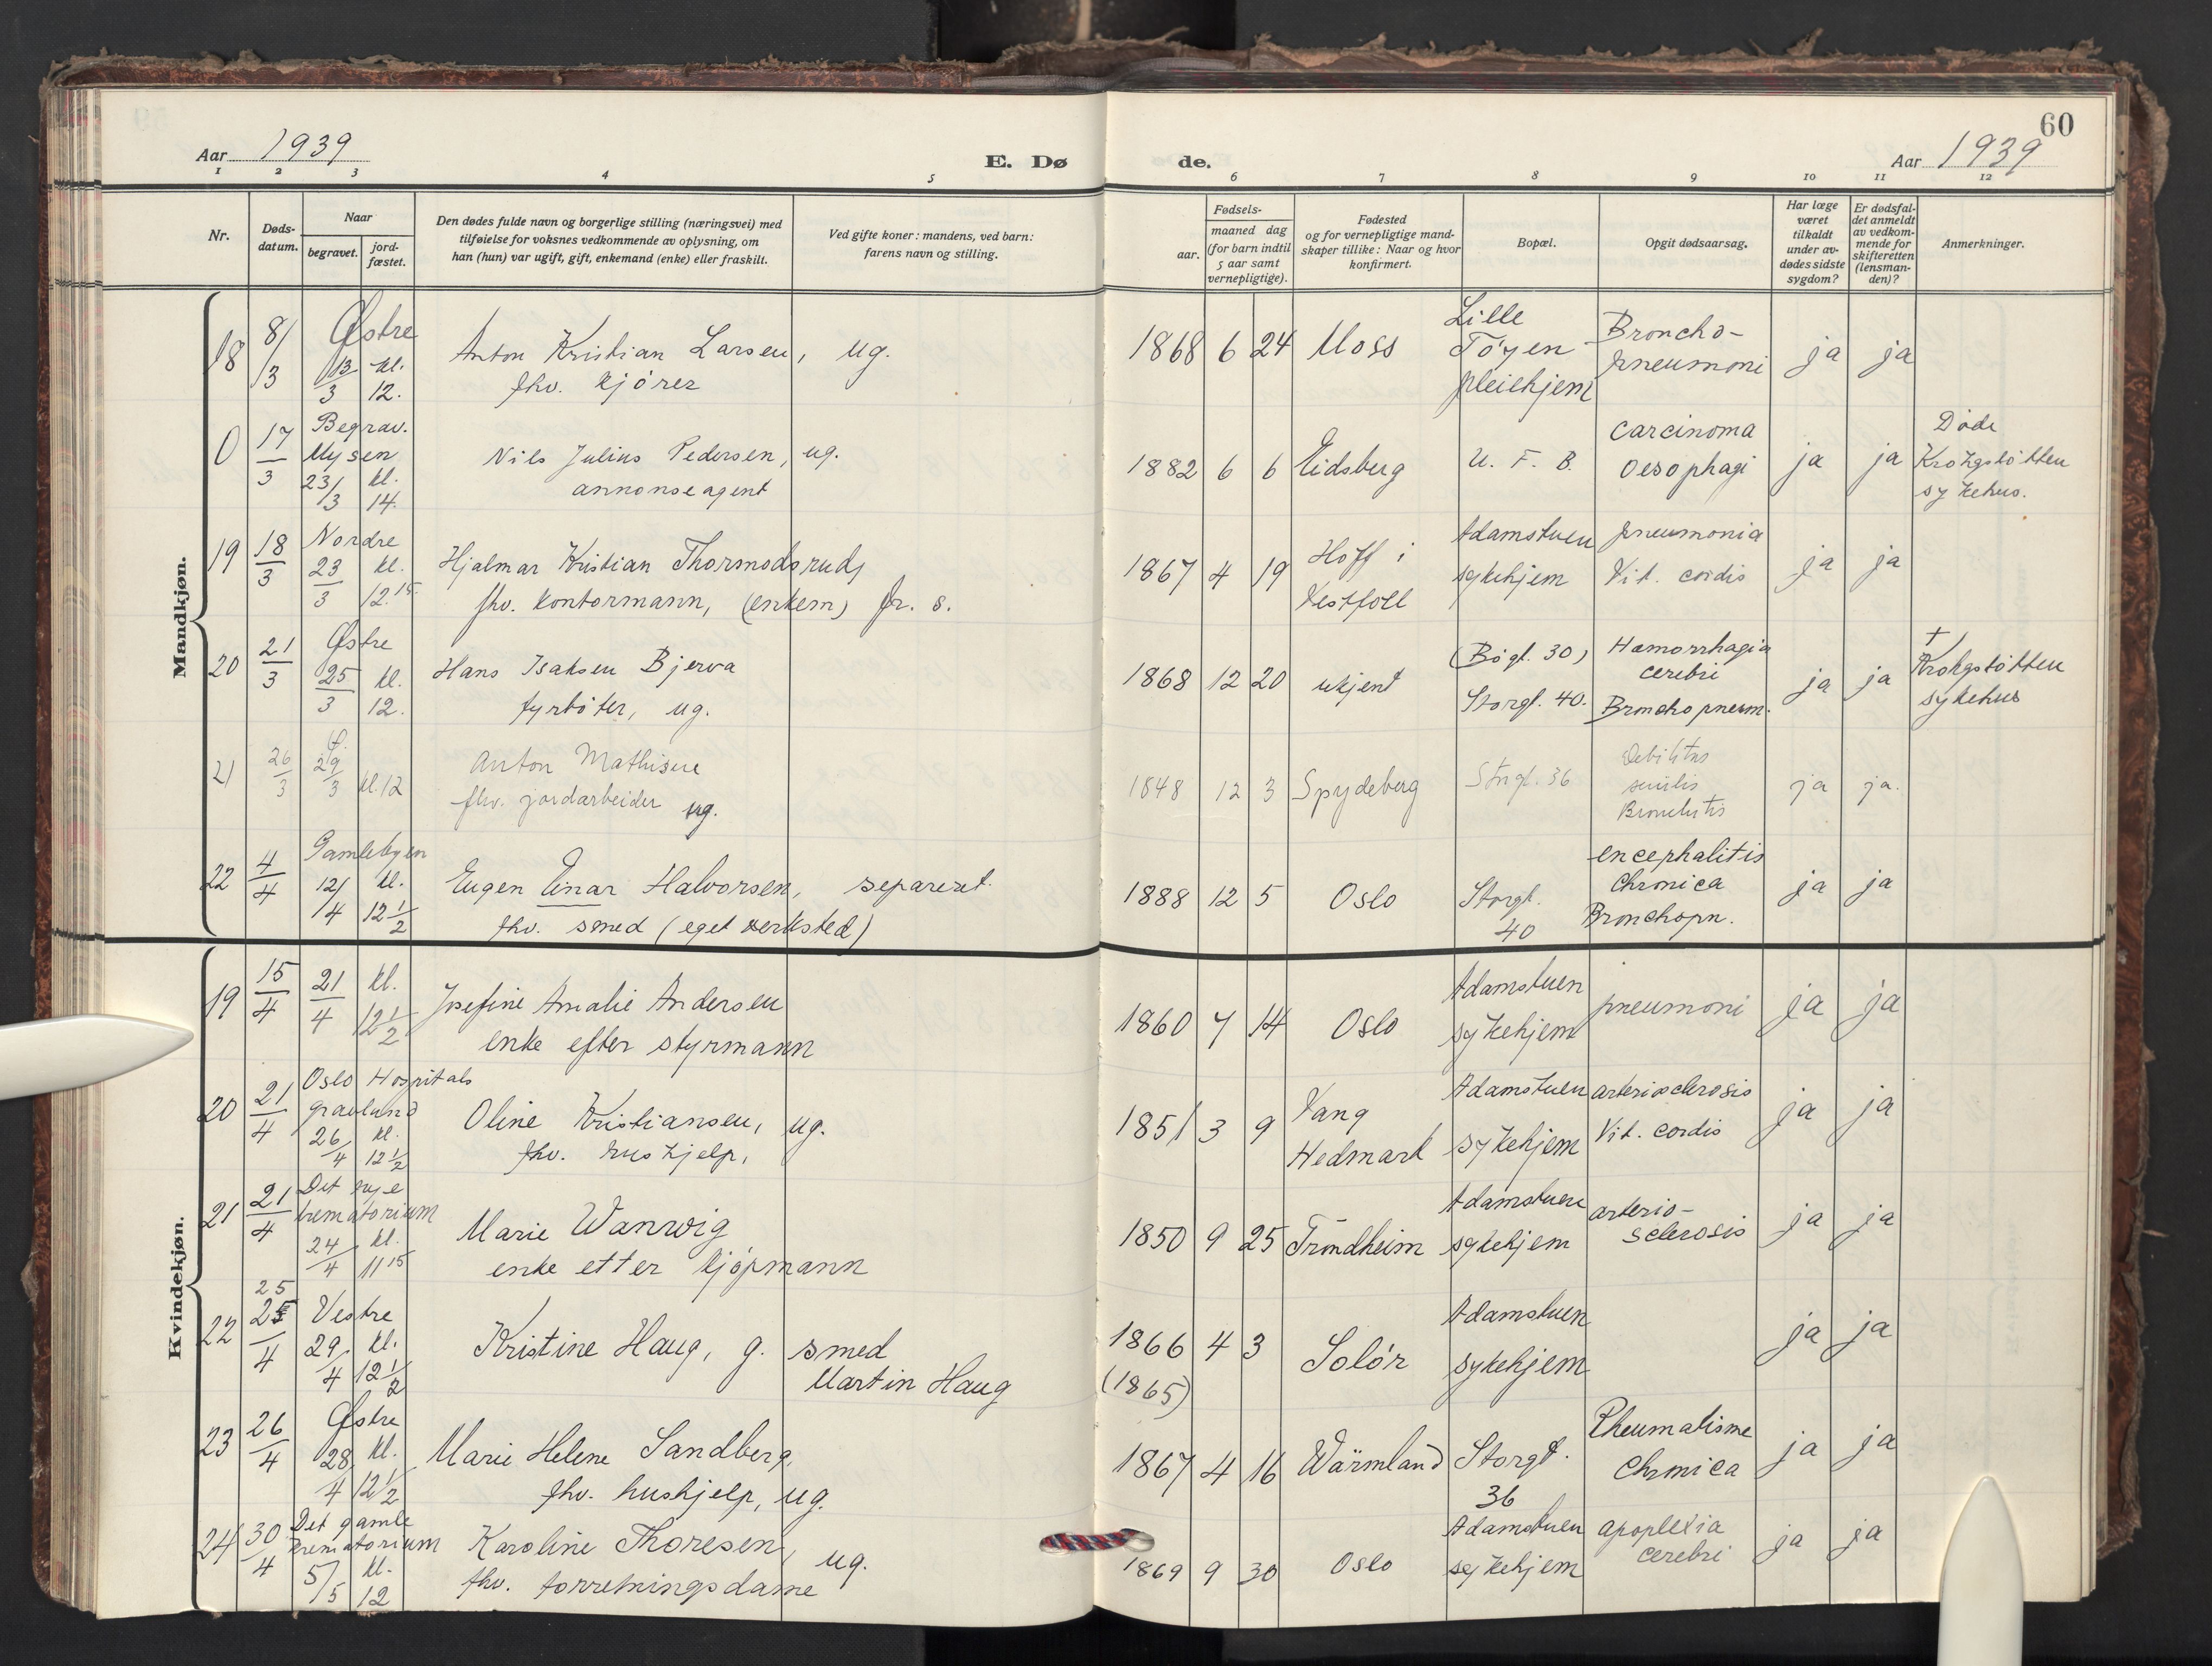 60
Aar 1939
E. Dø
de.
Aar 1939
1 2 3 4 5 6 7 8 9 10 11 12
Nr.
Døds-
datum.
Naar
begravet.
jord-
fæstet.
Den dødes fulde navn og borgerlige stilling (næringsvei) med
tilføielse for voksnes vedkommende av oplysning, om
han (hun) var ugift, gift, enkemand (enke) eller fraskilt.
Ved gifte koner: mandens, ved barn:
farens navn og stilling.
Fødsels-
aar.
maaned dag
(for barn indtil
5 aar samt
vernepligtige).
Fødested
og for vernepligtige mand-
skaper tillike: Naar og hvor
konfirmert.
Bopæl.
Opgit dødsaarsag.
Har læge
været
tilkaldt
under av-
dødes sidste
sygdom?
Er dødsfal-
det anmeldt
av vedkom-
mende for
skifteretten
(lensman-
den)?
Anmerkninger.
Mandkjøn.
18 8/3 Østre 13/3 kl. 12.
Anton Kristian Larsen, ug.
fhv. kjörer
1868 6 24 Moss
Lille
Töyen
pleiehjem
Broncho-
pneumoni
ja ja
0 17/3 Begrav. Mysen 23/3 kl. 14.
Nils Julius Pedersen, ug.
annonseagent
1882 6 6 Eidsberg U. F. B.
carcinoma
oesophagi
ja ja
Döde
Krohgstötten
sykehus.
19 18/3 Nordre 23/3 kl. 12.15
Hjalmar Kristian Thormodsrud,
fhv. kontormann, (enkem) fr. s.
1867 4 19
Hoff i
Vestfold
Adamstuen
sykehjem
pneumonia
Vit. cordis
ja ja
20 21/3 Østre 25/3 kl. 12.
Hans Isaksen Bjerva
fyrböter, ug.
1868 12 20 ukjent
(Bögt. 30)
Storgt. 40.
Hæmorrhagia
cerebri
Bronchopneum.
ja ja
†
Krohgstötten
sykehus
21 26/3 Ø. 29/3 kl. 12
Anton Mathisen
fhv. jordarbeider ug.
1848 12 3 Spydeberg Storgt. 36
Debilitas
senilis
Bronchitis
ja ja.
22 4/4 Gamlebyen 12/4 kl. 12 1/2
Eugen Einar Halvorsen, separert.
fhv. smed (eget verksted)
1888 12 5 Oslo
Storgt.
40
encephalitis
Chronica
Bronchopn.
ja ja
Kvindekjøn.
19 15/4 21/4 kl. 12 1/2
Josefine Amalie Andersen
enke efter styrmann
1860 7 14 Oslo
Adamstuen
sykehjem
pneumoni
ja ja
20 21/4 Oslo Hospitals gravlund 26/4 kl. 12 1/2
Oline Kristiansen, ug.
fhv. hushjelp,
1851 3 9
Vang
Hedmark
Adamstuen
sykehjem
arteriosclerosis
Vit. cordis
ja ja
21 21/4 Det nye krematorium 24/4 kl. 11 15
Marie Wanvig
enke etter kjöpmann
1850 9 25 Trondheim
Adamstuen
sykehjem
arterio-
sclerosis
ja ja
22 25 25/4 Vestre 29/4 kl. 12 1/2
Kristine Haug, g. smed
Martin Haug
1866 4 3
(1865)
Solör
Adamstuen
sykehjem
ja ja
23 26/4 Østre 28/4 kl. 12 1/2
Marie Helene Sandberg,
fhv. hushjelp, ug.
1867 4 16 Wärmland
Storgt.
36
Rheumatisme
Chronica
ja ja
24 30/4 Det gamle krematorium 5/5 kl. 12
Karoline Thoresen, ug.
fhv. forretningsdame
1869 9 30 Oslo
Adamstuen
sykehjem
apoplexia
cerebri
ja ja